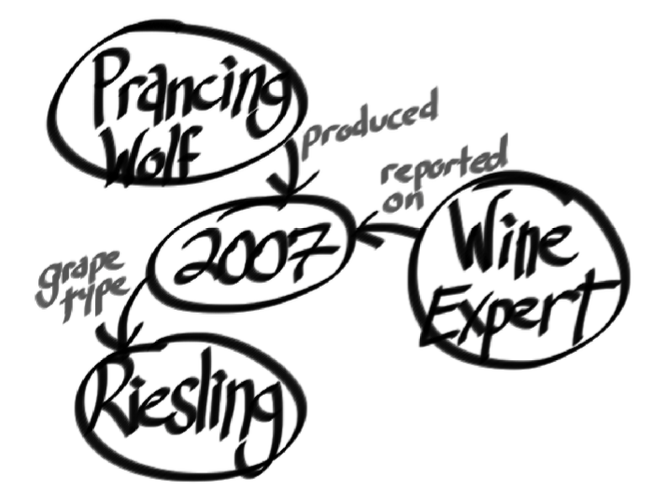 Prancing
Wolf
produced
reported
on
2007
Wine
Expert
grape
type
Riesling